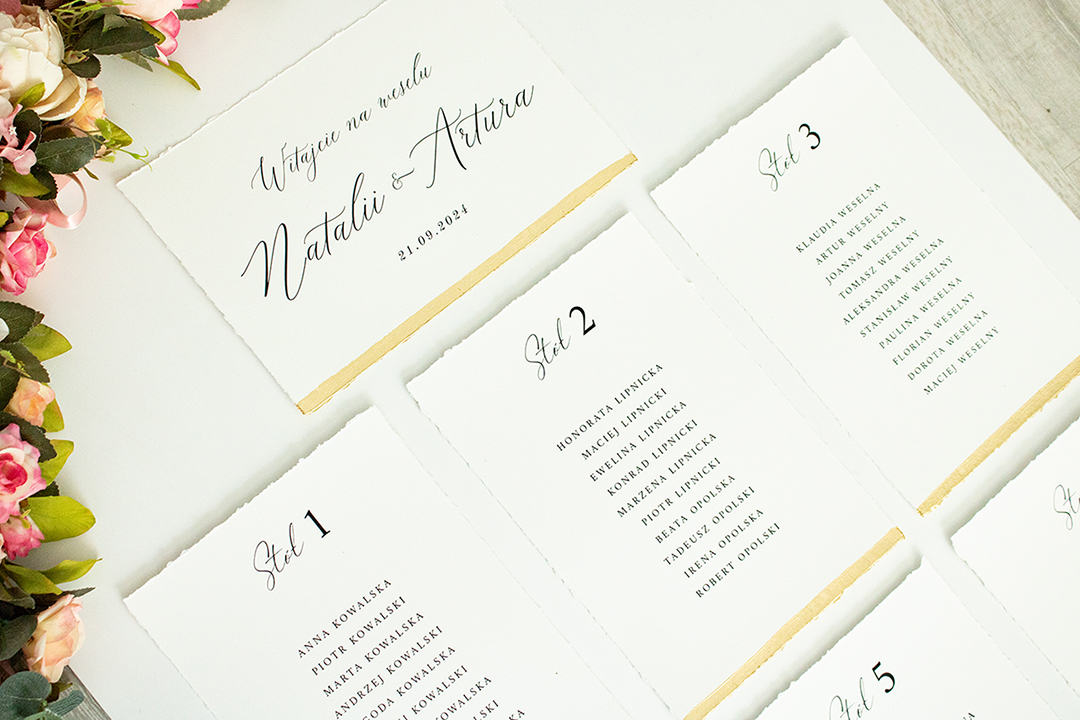 Witajcie na weselu
Natalii & Artura
21.09.2024
Stół 1
ANNA KOWALSKA
PIOTR KOWALSKI
MARTA KOWALSKA
ANDRZEJ KOWALSKI
KOWALSKA
KOWALSKI
Stół 2
HONORATA LIPNICKA
MACIEJ LIPNICKI
EWELINA LIPNICKA
KONRAD LIPNICKI
MARZENA LIPNICKA
PIOTR LIPNICKI
BEATA OPOLSKA
TADEUSZ OPOLSKI
IRENA OPOLSKA
ROBERT OPOLSKI
Stół 3
KLAUDIA WESELNA
ARTUR WESELNY
JOANNA WESELNA
TOMASZ WESELNY
ALEKSANDRA WESELNA
STANISŁAW WESELNY
PAULINA WESELNA
FLORIAN WESELNY
DOROTA WESELNA
MACIEJ WESELNY
Stół 5